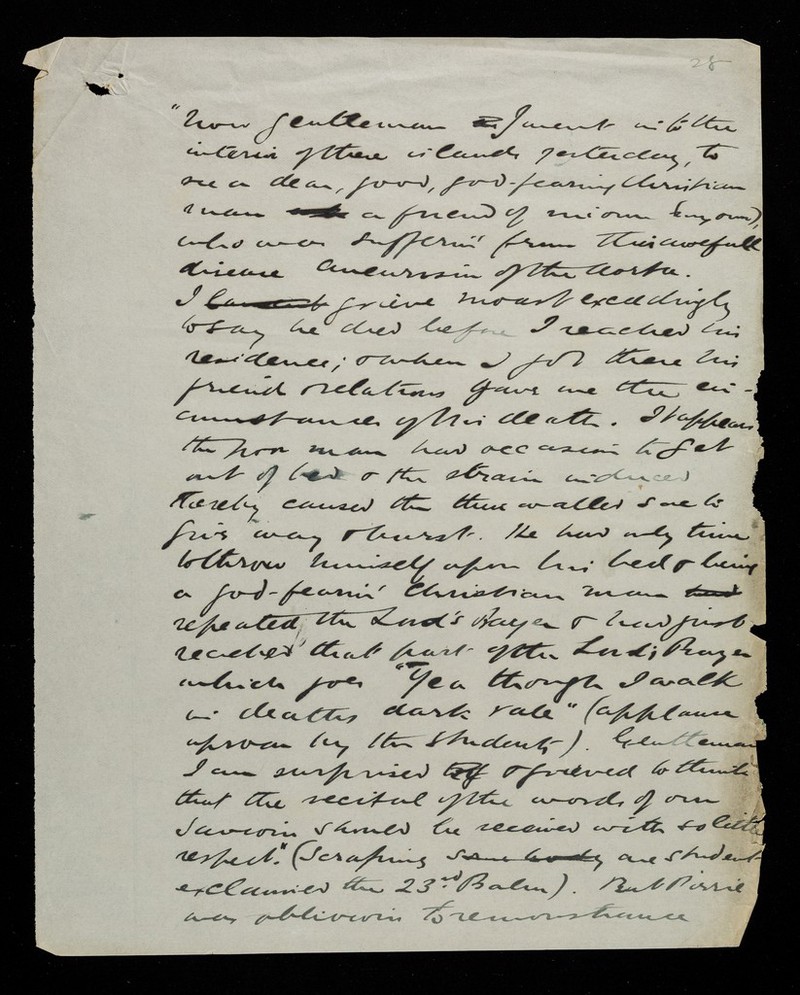 28
"Now gentleman I went into the
interior of these islands yesterday, to
see a dear, good, god-fearing Christian
man a friend of mi own (my own),
who was sufferin' from this awefull
disease aneurism of the Aorta.
I lament grieve moast exceedingly
to say he died before I reached his
residence; & when I got there his
friends & relations gave me the cir-
cumstances of his death. It appears
the poor man had occasion to get
out of bed & the strain induced
thereby caused the thin walled sac to
give way & burst. He had only time
to throw himself upon his bed & being
a god-fearin' Christian man had
repeated the Lord's Prayer & had just
reached that part of the Lord's Prayer
which goes "Yea though I walk
in deaths dark vale" (applause
uproar by the Students). Gentleman
I am surprised & grieved to think
that the recital of the words of our
Saviour should be received with so little
respect." (Scraping some body one student
exclaimed the 23rd Psalm). But Pirrie
was oblivious to remonstrance